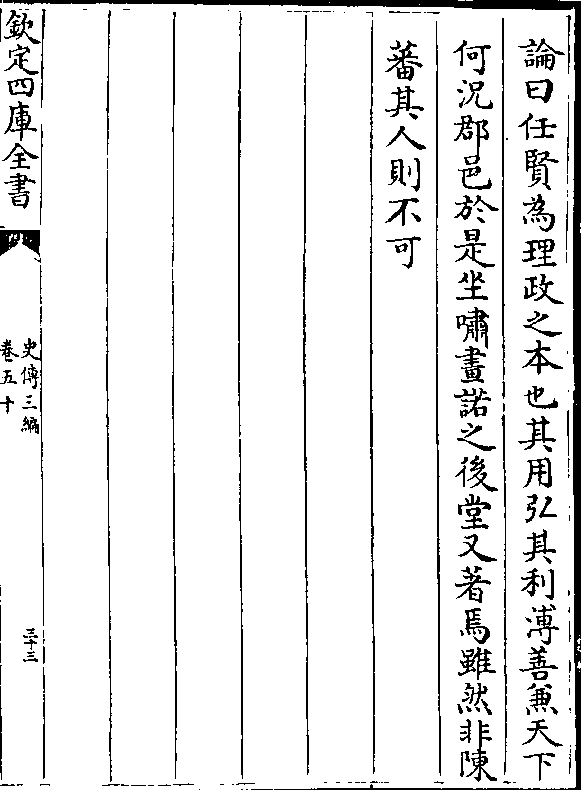 論曰任賢為理政之本也其用弘其利溥善兼天下
何況郡邑於是坐嘯畫諾之後堂又著焉雖然非陳
蕃其人則不可
欽定四庫全書
史傳三編
卷五十
三十三